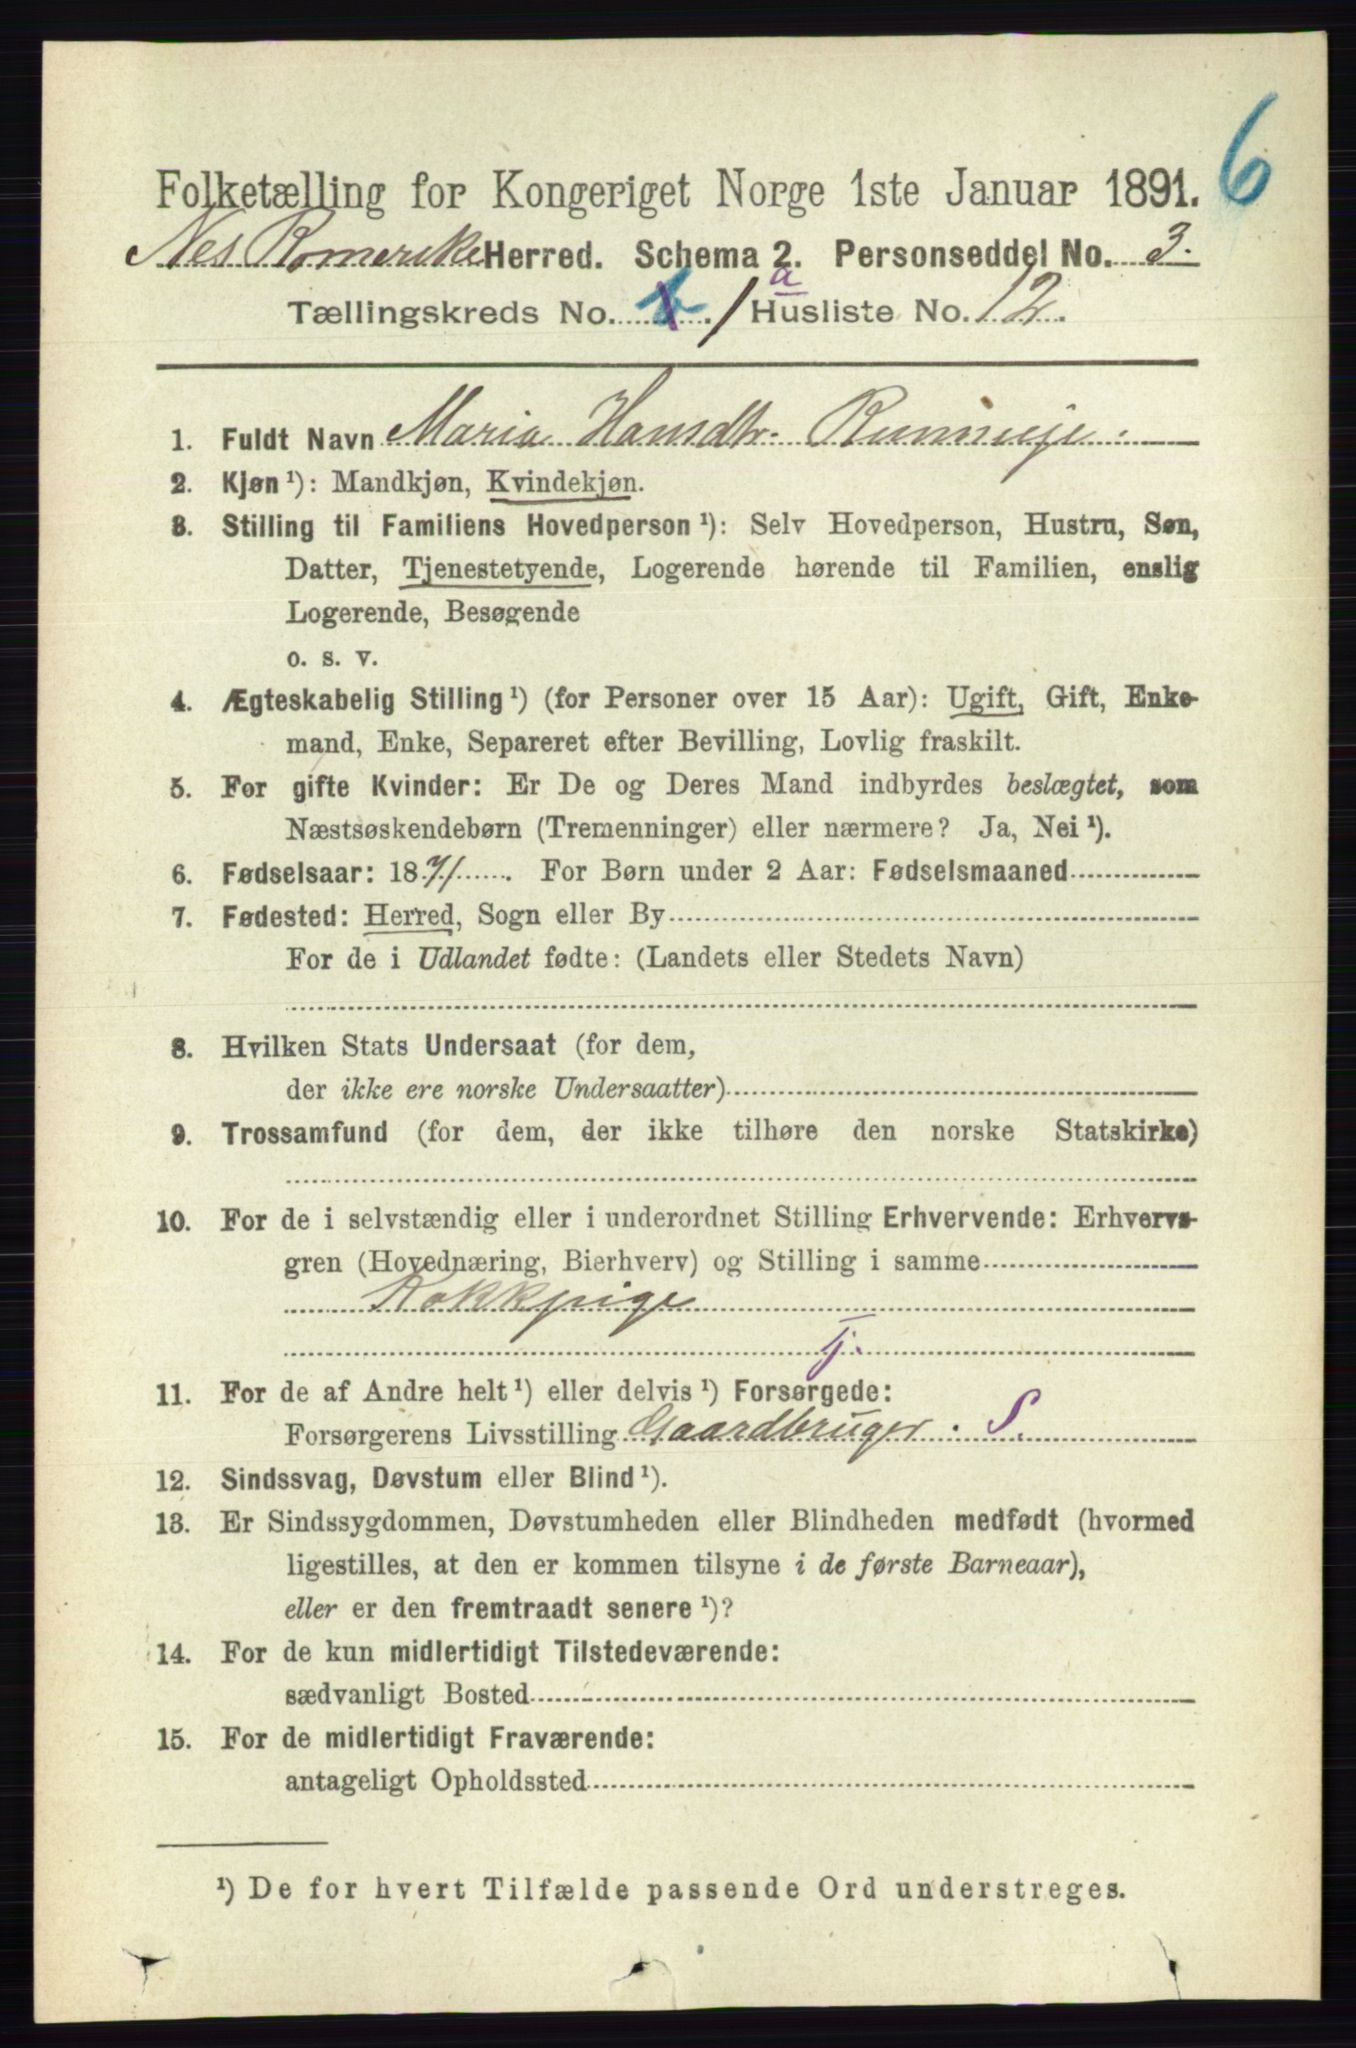 6
Folketælling for Kongeriget Norge 1ste Januar 1891.
Nes Romerike Herred. Schema 2. Personseddel No. 3.
a
Tællingskreds No. 1 Husliste No. 12.
1. Fuldt Navn Maria Hansdtr.
2. Kjøn ¹): Mandkjøn, Kvindekjøn.
3. Stilling til Familiens Hovedperson ¹): Selv Hovedperson, Hustru, Søn,
Datter, Tjenestetyende, Logerende hørende til Familien, enslig
Logerende, Besøgende
o. s. v.
4. Ægteskabelig Stilling ¹) (for Personer over 15 Aar): Ugift, Gift, Enke-
mand, Enke, Separeret efter Bevilling, Lovlig fraskilt.
5. For gifte Kvinder: Er De og Deres Mand indbyrdes beslægtet, som
Næstsøskendebørn (Tremenninger) eller nærmere? Ja, Nei ¹).
6. Fødselsaar: 1871. For Børn under 2 Aar: Fødselsmaaned
7. Fødested: Herred, Sogn eller By
For de i Udlandet fødte: (Landets eller Stedets Navn)
8. Hvilken Stats Undersaat (for dem,
der ikke ere norske Undersaatter)
9. Trossamfund (for dem, der ikke tilhøre den norske Statskirke)
10. For de i selvstændig eller i underordnet Stilling Erhvervende: Erhvervs-
gren (Hovednæring, Bierhverv) og Stilling i samme
Kokkpige
tj.
11. For de af Andre helt ¹) eller delvis ¹) Forsørgede:
Forsørgerens Livsstilling Gaardbruger. S.
12. Sindssvag, Døvstum eller Blind ¹).
13. Er Sindssygdommen, Døvstumheden eller Blindheden medfødt (hvormed
ligestilles, at den er kommen tilsyne i de første Barneaar),
eller er den fremtraadt senere ¹)?
14. For de kun midlertidigt Tilstedeværende:
sædvanligt Bosted
15. For de midlertidigt Fraværende:
antageligt Opholdssted
¹) De for hvert Tilfælde passende Ord understreges.